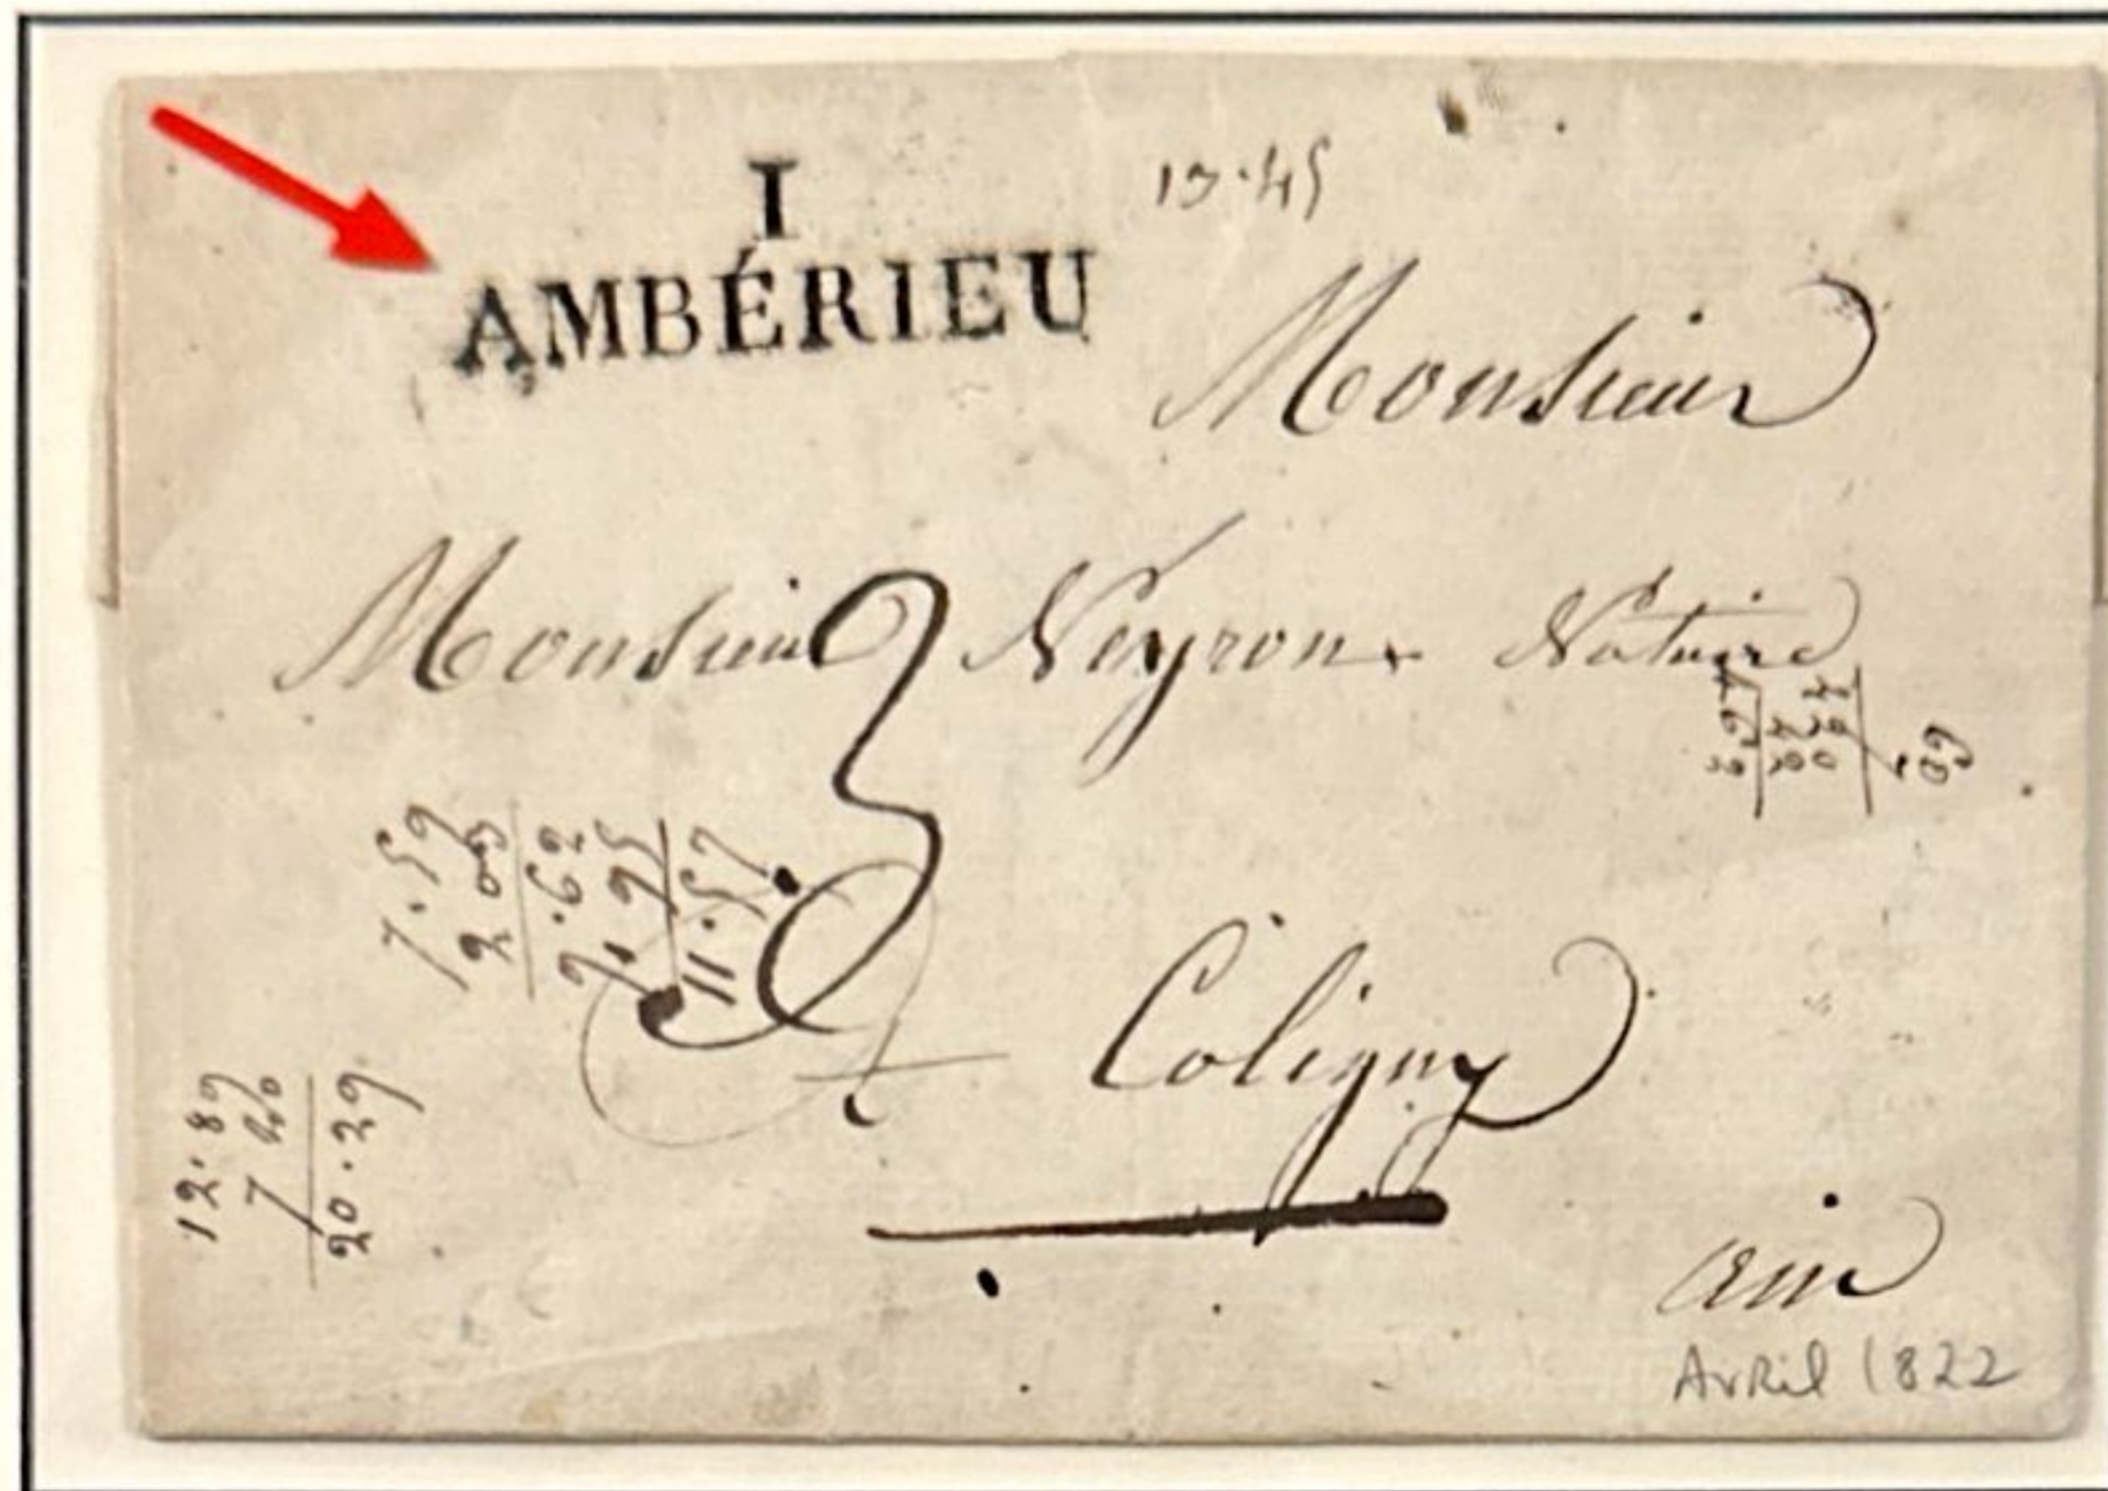 I
AMBÉRIEU
13.45
Monsieur
Monsieur Neyron Notaire
3
7.59
2 03
9.62
1.95
11.57
12.89
7 40
20.29
A Coligny
ain
Avril 1822